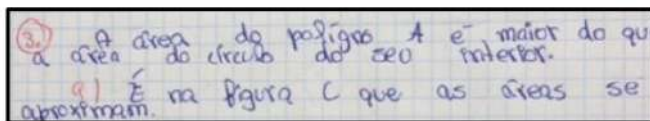 3. A área do polígno A é maior do qu
a área do círculo do seu interior.
a) É na figura C que as áreas se
aproximam.